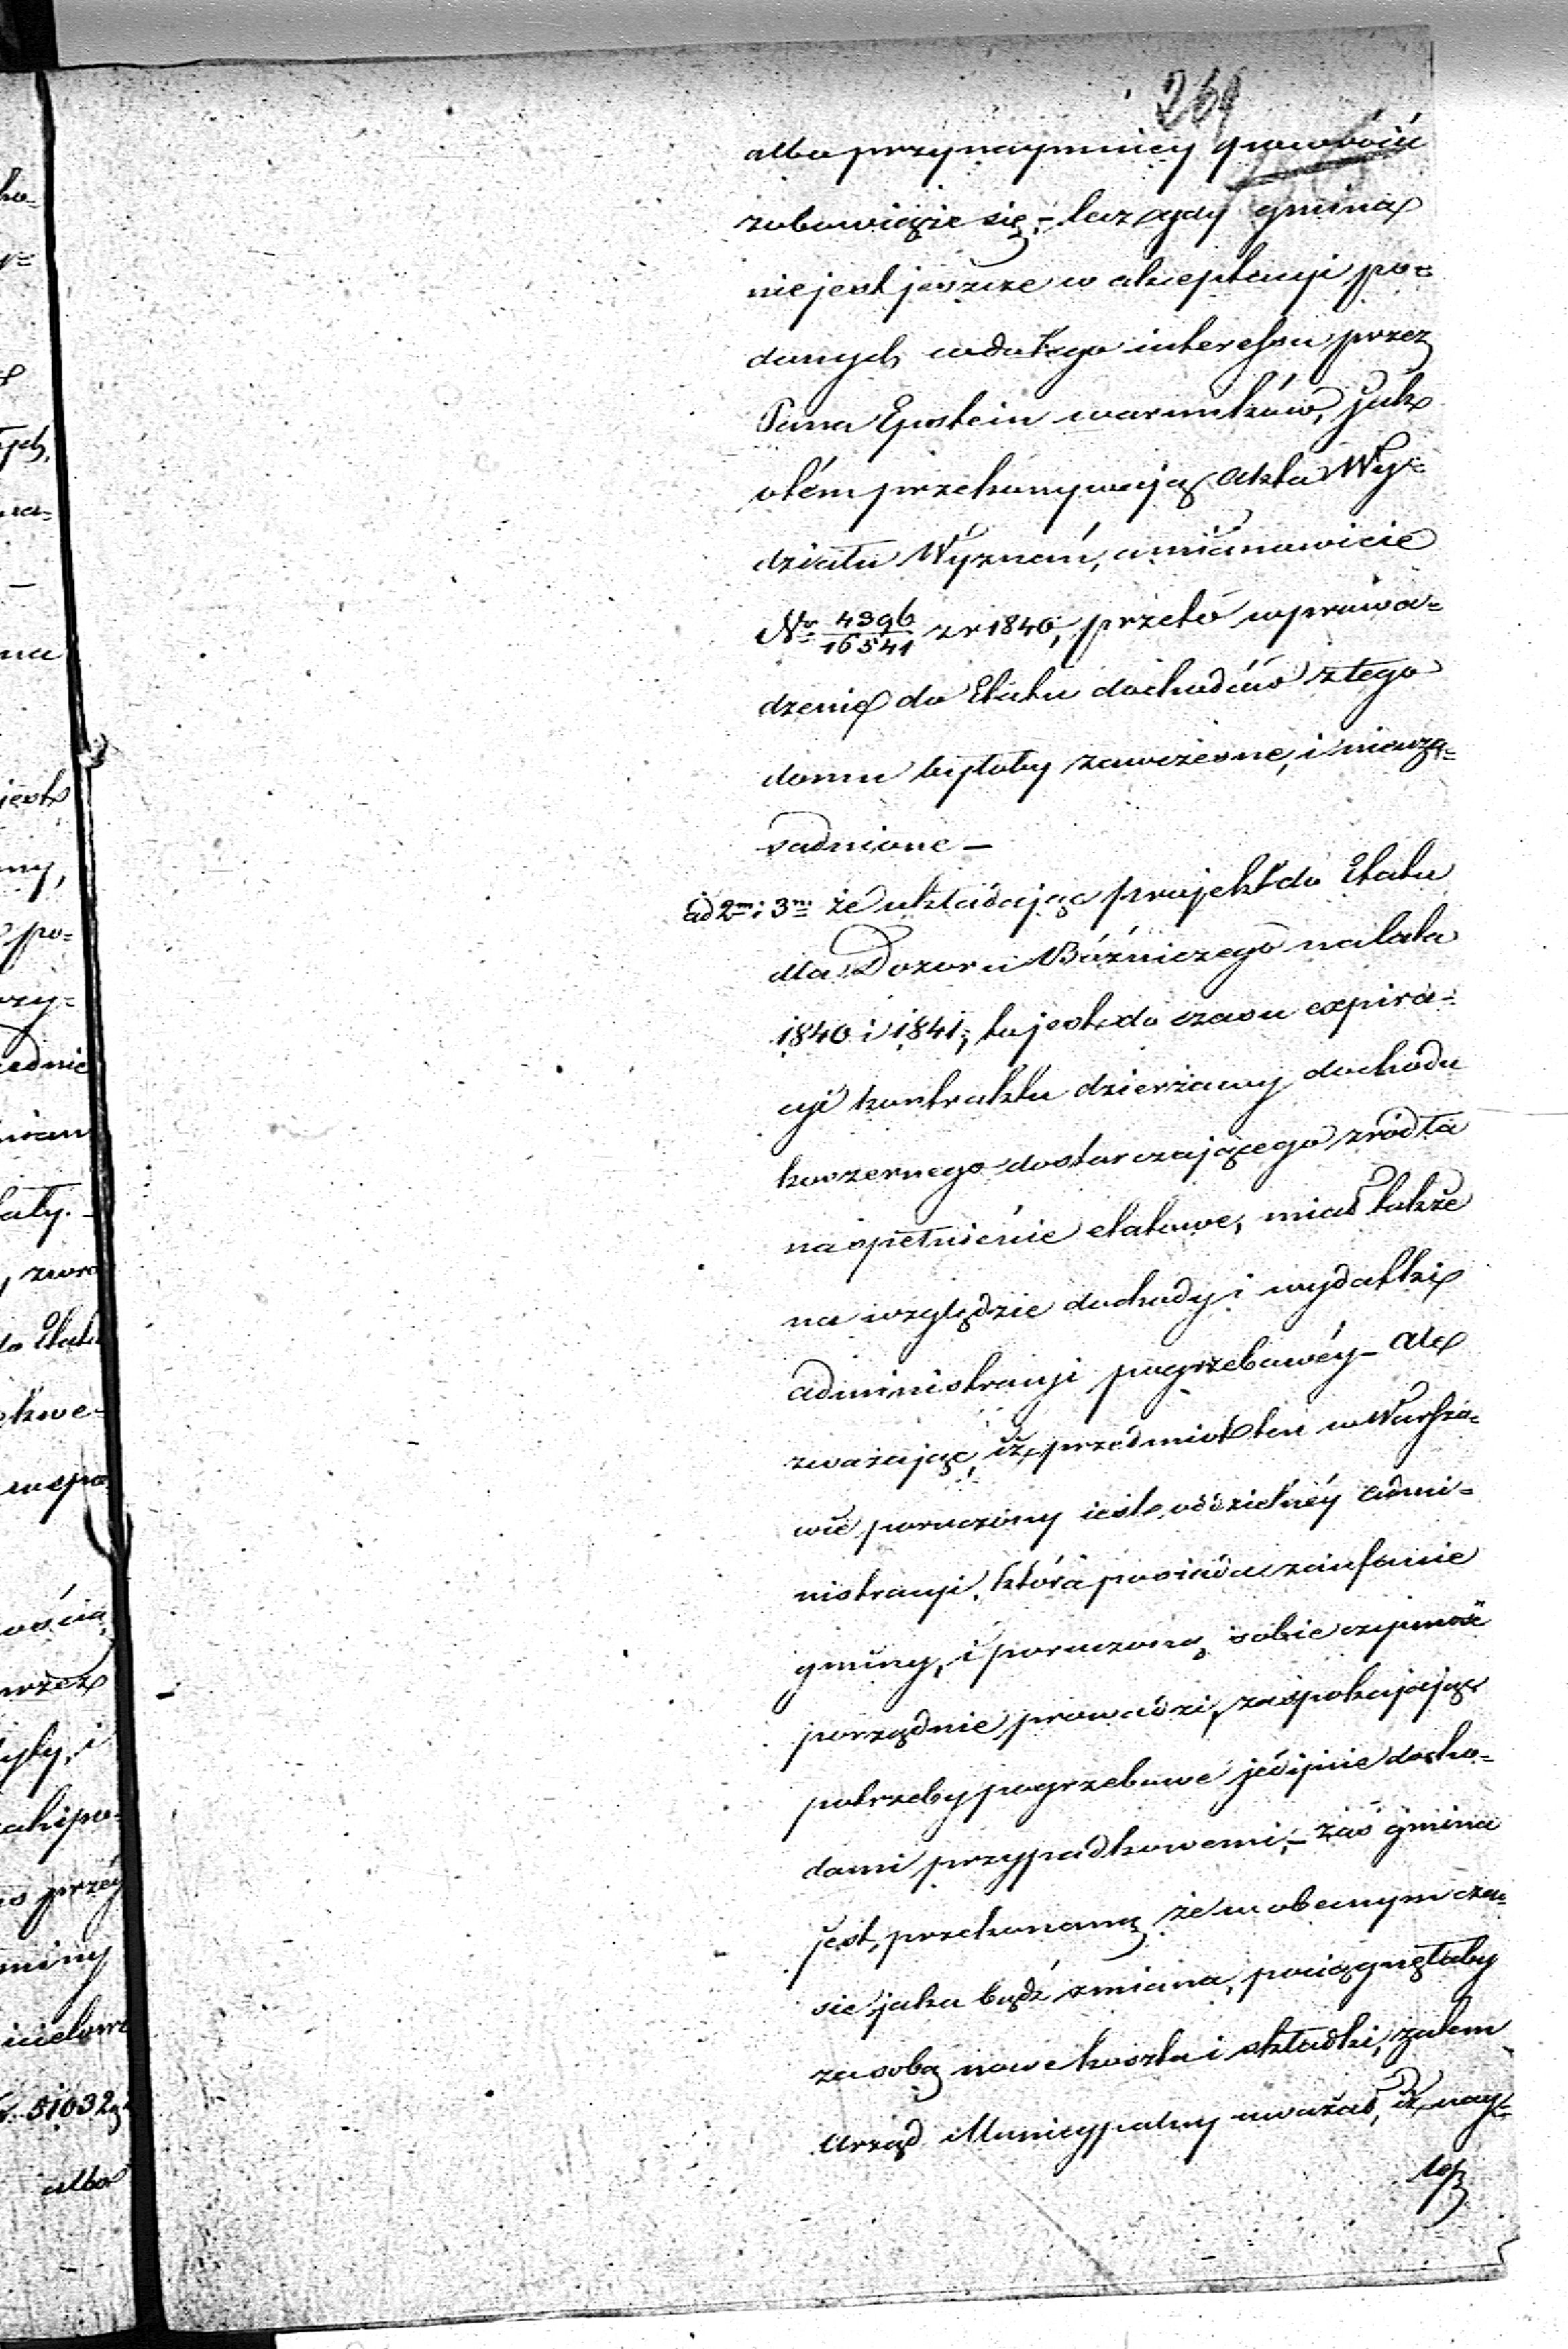 269
albo przynaymniey powrócić
zobowiąże się; – lecz gdy gmina
nie jest jeszcze w akceptacyi po=
danych co do tego interessu przez
Pana Epstein warunków, jak
o tém przekonywają akta Wy=
działu Wyznań, a mianowicie
Nr 4396/16541 z r 1840, przeto wprowa=
dzenie do Etatu dochodów z tego
domu byłoby zawczesne, i nieuza=
sadnione –
ad 2m i 3m że układając projekt do Etatu
dla Dozoru Bóżniczego na lata
1840 i 1841, to jest do czasu expira=
cyi kontraktu dzierżawy dochodu
koszernego dostarczającego zródła
na spełnienie etatowe, miał także
na względzie dochody i wydatki
administracyi pogrzebowéy – ale
zważając, iż przedmiot ten w Warsza=
wie poruczony iest oddzielnéy admi=
nistracyi, która posiada zaufanie
gminy, i poruczoną sobie czynność
porządnie prowadzi, zaspokajając
potrzeby pogrzebowe jedynie docho=
dami przypadkowemi, – zaś gmina
jest przekonaną że w obecnym cza=
sie jaka bądź zmiana, pociągnęłaby
za sobą nowe koszta i składki, zatem
Urząd Municypalny uważał, iż nay=
lep
ad 2m
albo
51032